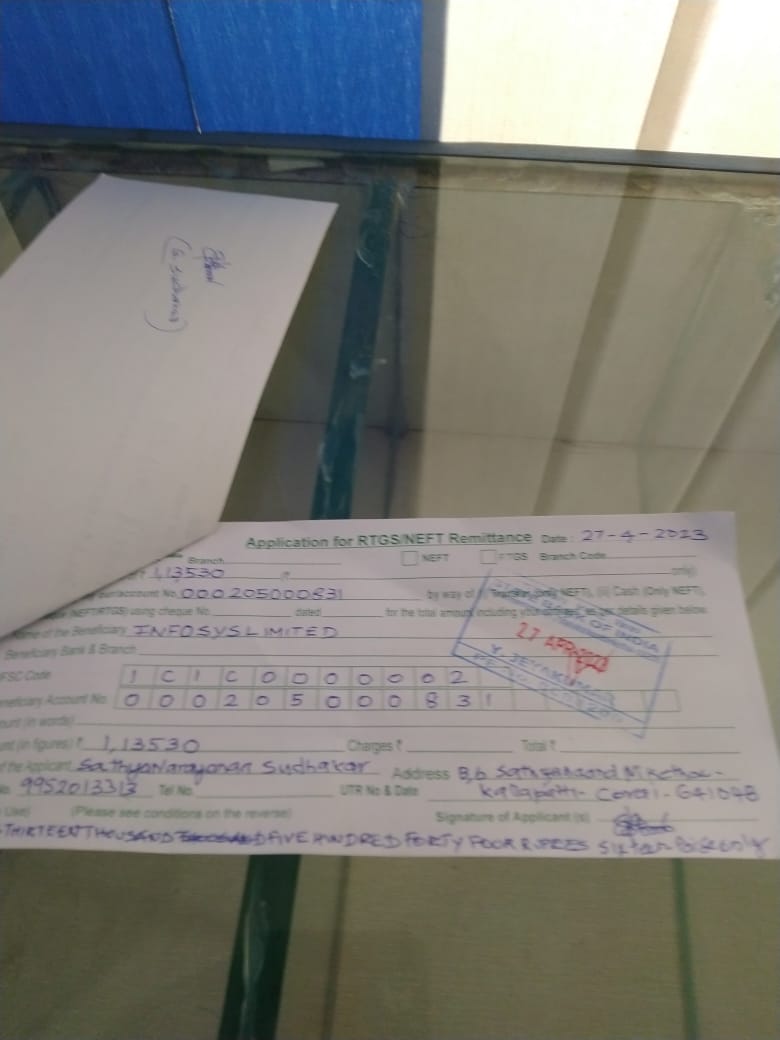 (G. Sudhakar)
Application for RTGS/NEFT Remittance Date: 27-4-2023
Branch NEFT RTGS Branch Code
1,13530 only)
account No. 000205000831 by way of (i) Transfer (only NEFT), (ii) Cash (Only NEFT),
(NEFT/RTGS) using cheque No. dated for the total amount including your details given below
Name of the Beneficiary INFOSYS LIMITED
Beneficiary Bank & Branch
IFSC Code I C I C 0 0 0 0 0 0 2
Beneficiary Account No. 0 0 0 2 0 5 0 0 0 8 3 1
OF INDIA
27 APR 2023
Y. JEYAKUMAR
(in words)
(in figures) ₹ 1,13530 Charges ₹ Total ₹
of the Applicant SathyaNarayanan Sudhakar Address
9952013313 Tel No. UTR No & Date Kalapatti - Covai - 641048
Use) (Please see conditions on the reverse) Signature of Applicant (s)
THIRTEEN THOUSAND FIVE HUNDRED FORTY FOUR RUPEES Sixteen Paise only